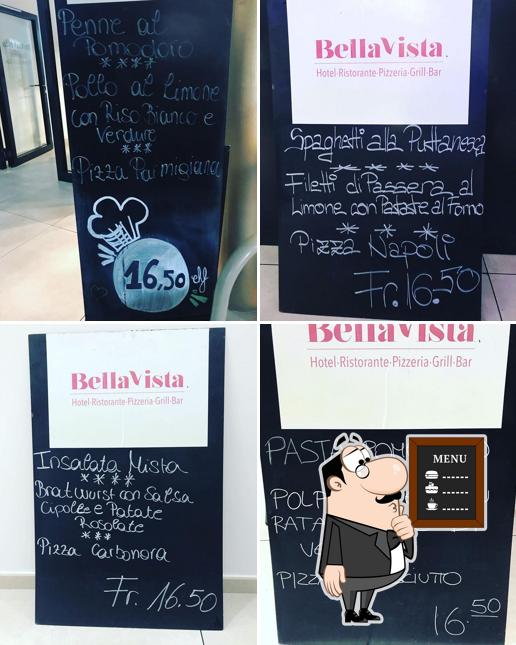 Penne al
Pomodoro
****
Pollo al Limone
con Riso Bianco e
Verdure
***
Pizza Parmigiana
16,50 chf
BellaVista.
Hotel·Ristorante·Pizzeria·Grill·Bar
Spaghetti alla Puttanesca
****
Filetti di Passera al
Limone con Patate al Forno
***
Pizza Napoli
Fr. 16.50
BellaVista.
Hotel·Ristorante·Pizzeria·Grill·Bar
Insalata Mista
****
Bratwurst con Salsa
Cipolle e Patate
Rosolate
***
Pizza Carbonara
Fr. 16.50
BellaVista.
Hotel·Ristorante·Pizzeria·Grill·Bar
PAST
POLP
RATA
PIZZ
16.50
MENU